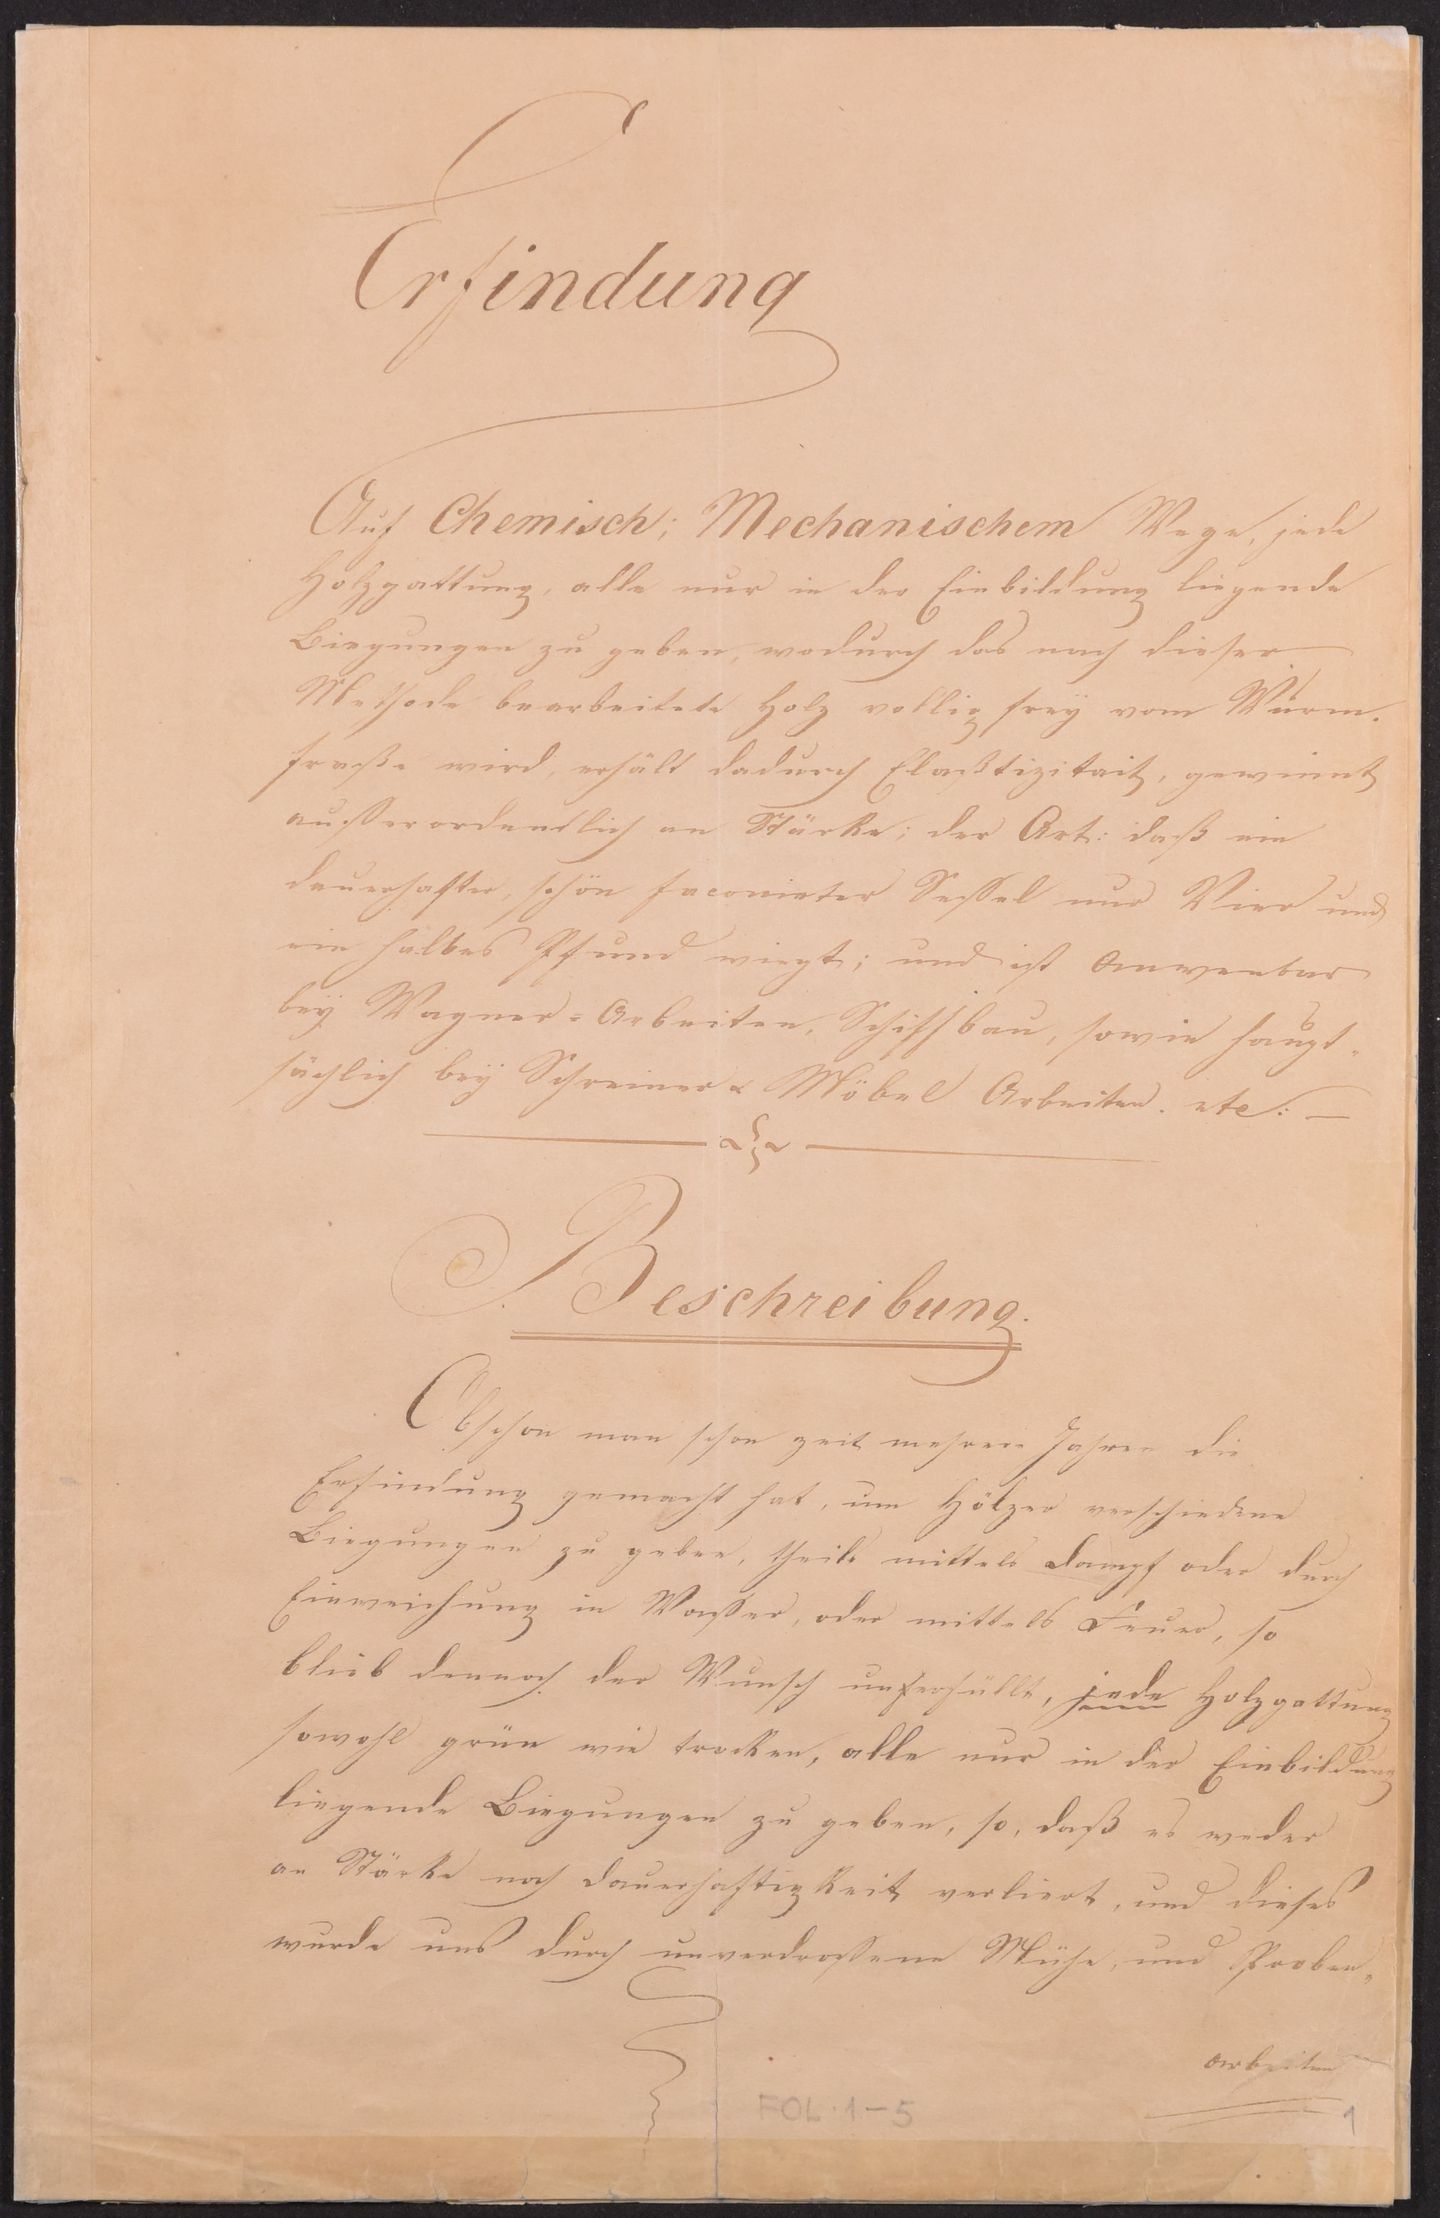 Erfindung
Auf Chemisch; Mechanischem Wege, jede
Holzgattung, alle nur in der Einbildung liegende
Biegungen zu geben, wodurch das nach dieser
Methode bearbeitete Holz vollig frey vom Wurm-
fraße wird, erhält dadurch Elaßtizitait, gewinnt
ausserordentlich an Stärke; der Art: daß ein
dauerhafter, schön faconirter Sessel nur Vier und
ein halbes Pfund wiegt; und ist Anwenbar
bey Wagner=Arbeiten, Schiffbau, sowie haupt-
sächlich bey Schreiner & Möbel Arbeiten. etc: —
Beschreibung.
Obschon man schon zeit mehrere Jahren die
Erfindung gemacht hat, um Hölzer verschiedene
Biegungen zu geben, theils mittels Dampf oder durch
Einweichung in Wasser, oder mittels Feuer, so
blieb dennoch der Wunsch unerfüllt, jede Holzgattung
sowohl grün wie trocken, alle nur in der Einbildung
liegende Biegungen zu geben, so, daß es weder
an Stärke noch dauerhaftigkeit verliert, und dieses
wurde uns durch unverdrossene Mühe, und Proben-
arbeiten
FOL. 1-5
1